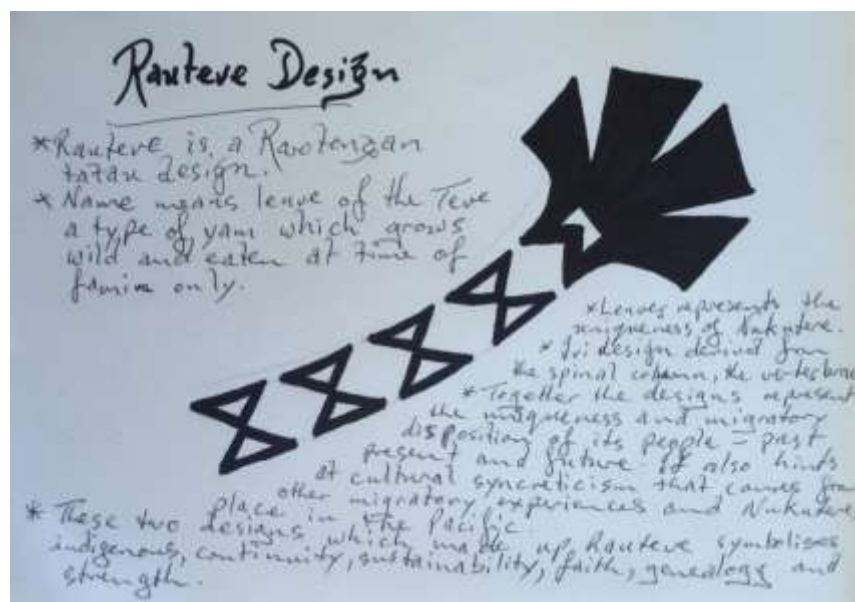 Rauteve Design
*Rauteve is a Rarotongan
tatau design.
* Name means leave of the Teve
a type of yam which grows
wild and eaten at time of
famine only.
*Leaves represents the
uniqueness of Nukutere.
* Ivi design derived from
the spinal column, the vertebrae
* Together the designs represent
the uniqueness and migratory
disposition of its people - past
present and future. It also hints
at cultural syncreticism that comes from
other migratory experiences and Nukutere
place in the Pacific
* These two designs which made up Rauteve symbolises
indigenous, continuity, sustainability, faith, genealogy and
strength.